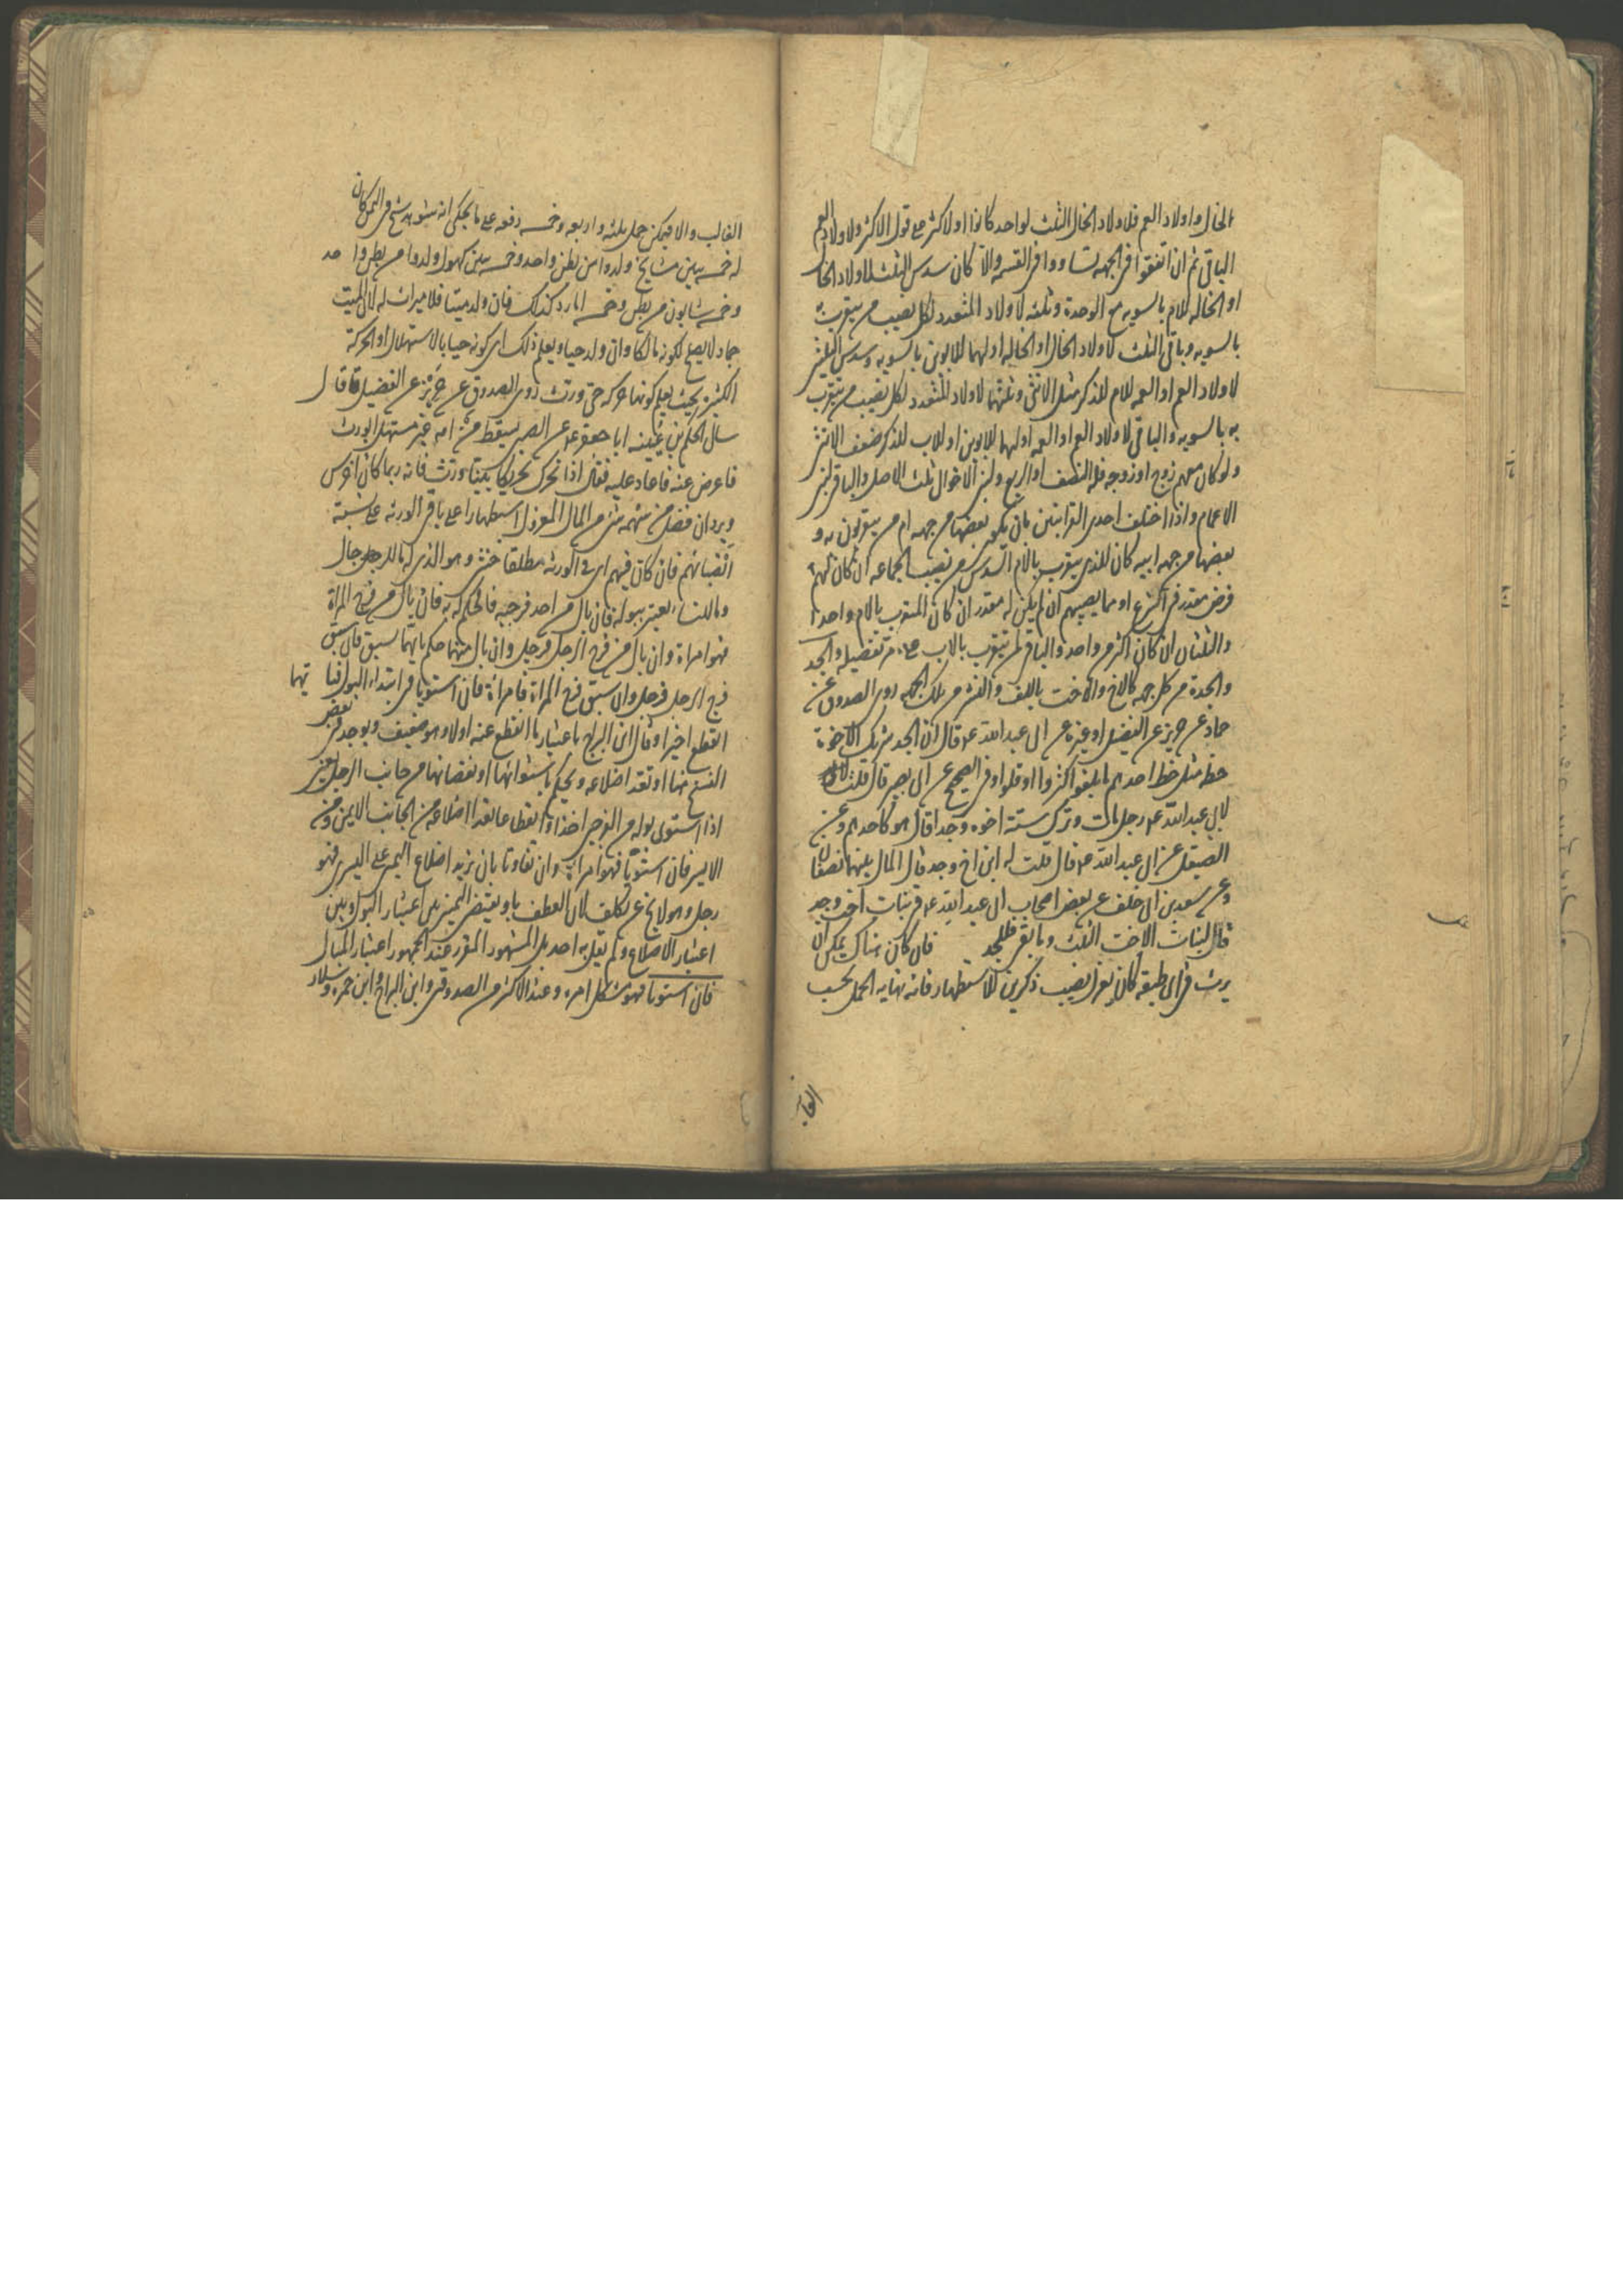 الخال واولاد العم فلاولاد الخال الثلث لواحد كانوا او لاكثر على قول الاكثر ولاولاد العم
الباقى ثم ان اتفقوا فى الجهه تساووا فى القسمه والا كان سدس الثلث لاولاد الخال
او الخاله للام بالسويه مع الوحدة وثلثه لاولاد المتعدد لكل نصيب من يتقرب به
بالسويه وباقى الثلث لاولاد الخال او الخاله او لهما للابوين بالسويه وسدس الثلثين
لاولاد العم او العمه للام للذكر مثل الانثى وثلثهما لاولاد المتعدد لكل نصيب من يتقرب
به بالسويه والباقى لاولاد العم او العمه او لهما للابوين او للاب للذكر ضعف الانثى
ولو كان معهم زوج او زوجه فله النصف او الربع ولبنى الاخوال ثلث الاصل والباقى لبنى
الاعمام واذا اختلف احدى القرابتين بان يكون بعضها من جهه ام من يتقربون به و
بعضها من جهه ابيه كان للذى يتقرب بالام السدس من نصيب الجماعه ان كان لهم
فرض مقدر فى الشرع او مما يصيبهم ان لم يكن له مقدر ان كان المتقرب بالام واحدا
والثلثان ان كان اكثر من واحد والباقى لمن يتقرب بالاب على ما مر تفصيله والجد
والجدة من كل جهه كالاخ والاخت بالليف والنشر من تلك الجهه روى الصدوق عن
حماد عن حريز عن الفضيل او غيره عن ابى عبد الله عم قال ان الجد شريك الاخوة
حظه مثل حظ احدهم ما بلغوا كثروا او قلوا وفى الصحيح عن ابى بصير قال قلت
لابى عبد الله عم رجل مات وترك ستة اخوه وجدا قال هو كاحدهم وعن
الصيقل عن ابى عبد الله عم قال قلت له ابن اخ وجد قال المال بينهما نصفان
وعن سعد بن ابى خلف عن بعض اصحاب ابى عبد الله عم فى بنات اخت وجد
قال لبنات الاخت الثلث وما بقى فللجد فان كان هناك يمكن ان
يرث فى اى طبقه كان يعزل نصيب ذكرين للاستظهار فانه نهايه الحمل بحسب
الغالب
الغالب والا فيمكن حمل ثلثه واربعه وخمسه دفعه على ما يحكى انه شوهد شيخ فى اليمن كان
له خمسه بنين مشايخ ولدوا من بطن واحد وخمسه بنين كهول ولدوا من بطن واحد
وخمسه شابون من بطن وخمسه امارد كذلك فان ولد ميتا فلا ميراث له لان الميت
جماد لا يصلح لكونه مالكا وان ولد حيا ويعلم ذلك اى كونه حيا بالاستهلال او الحركة
الكثيرة بحيث يعلم كونها حركه حى ورث روى الصدوق عن حريز عن الفضيل قال
سال الحكم بن عيينه ابا جعفر عم عن الصبى يسقط من امه غير مستهل ايورث
فاعرض عنه فاعاد عليه فقال اذا تحرك تحريكا بينا ورث فانه ربما كان اخرس
ويرد ان فضل من سهمه شئ من المال المعزول استظهارا على باقى الورثه على نسبة
انصبائهم فان كان فيهم اى فى الورثه مطلقا خنثى وهو الذى له ما للرجال
وما للنساء يعتبر ببوله فان بال من احد فرجيه فالحكم له به فان بال من فرج المراة
فهو امراة وان بال من فرج الرجل فرجل وان بال منهما حكم بايهما سبق فان سبق
فرج الرجل فرجل وان سبق فرج المراة فامراة فان استويا فى ابتداء البول فبايهما
انقطع اخيرا وقال ابن البراج باعتبار ما انقطع عنه اولا وهو ضعيف ويوجد فى بعض
النسخ هنا او تعد اضلاعه ويحكم باستوائها او نقصانها من جانب الرجل يعنى
اذا استوى بوله من الفرجين اخذا وانقطاعا تعد اضلاعه من الجانب الايمن ومن
الايسر فان استويا فهو امراة وان تفاوتا بان يزيد اضلاع اليمين على اليسرى فهو
رجل وهو لا يخ عن تكلف لان العطف باو يقتضى التخيير بين اعتبار البول وبين
اعتبار الاضلاع ولم يقل به احد بل المشهور المقرر عند الجمهور اعتبار المبال
فان استويا فهو مشكل امره وعند الاكثر من الصدوق وابن البراج وابن حمزه وسلار